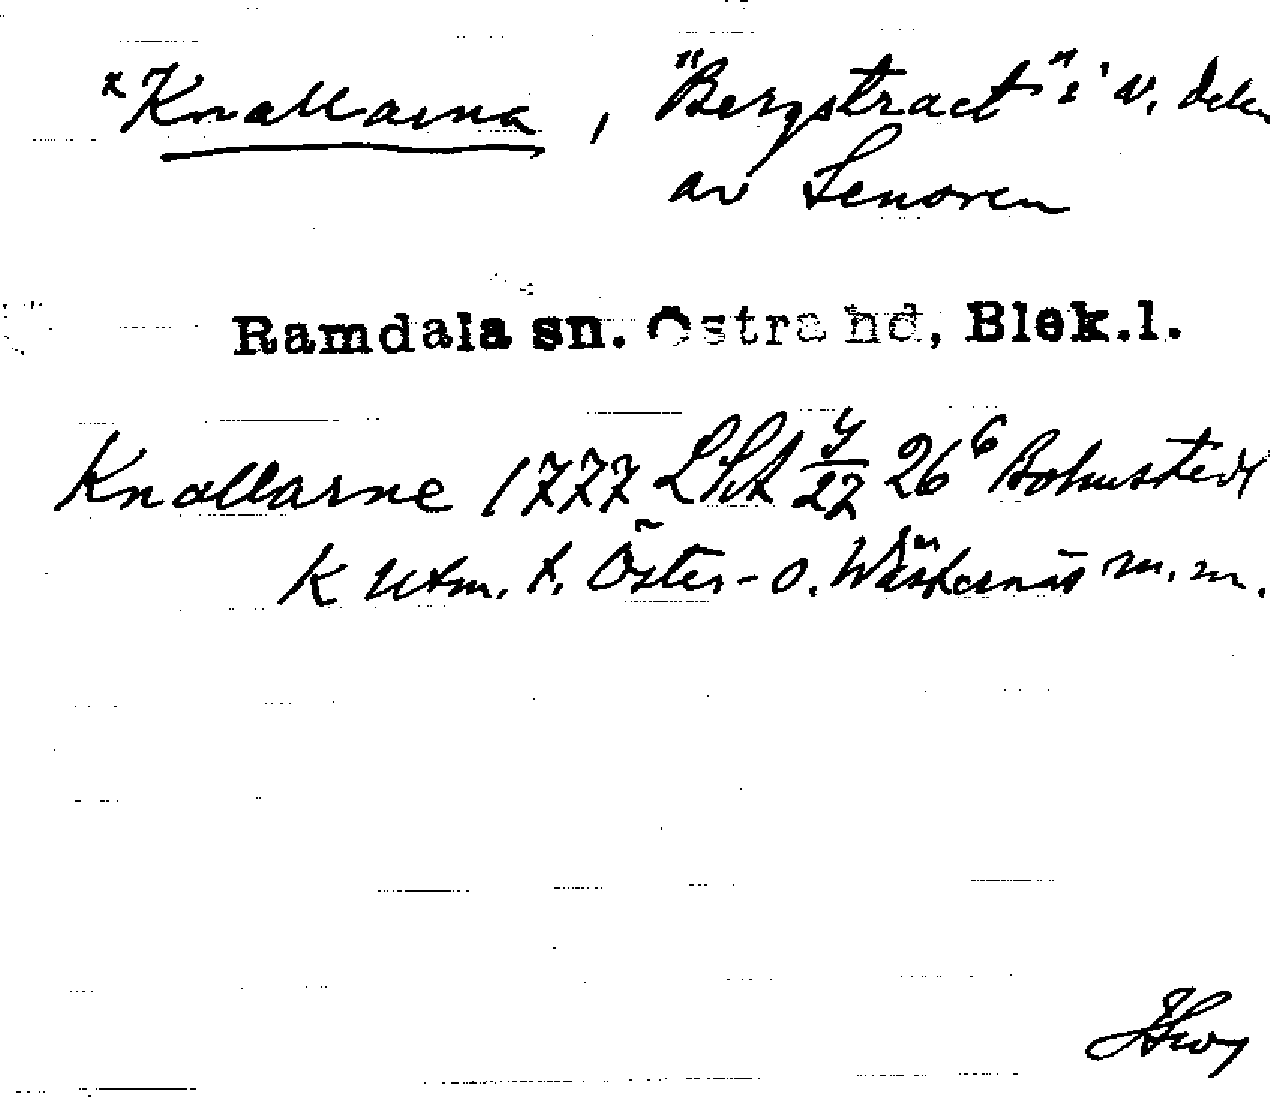 x Knallarna, "Bergstract" i v. delen
av Senoren
Ramdala sn. Östra hd, Blek.l.
Knallarne 1777 LSA Y/22 26⁶ Bohnstedt
K Utm. t. Öster- o. Wästernäs m.m.